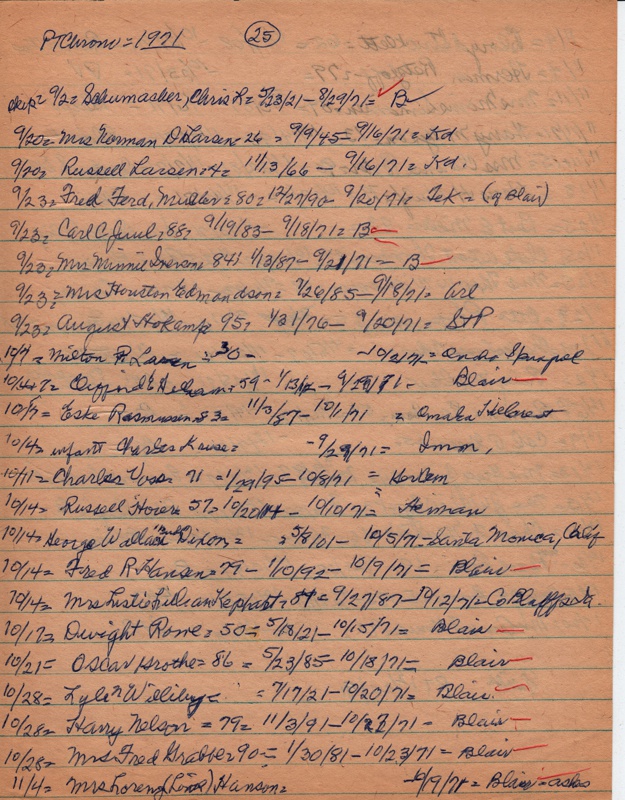 PTChrono = 1971 25
skip = 9/2 = Schumacher, Chris L = 5/23/21 - 8/29/71 = B
9/20 = Mrs Norman D Larsen = 26 = 9/9/45 - 9/16/71 = Kd
9/20 = Russell Larsen = 4 = 11/13/66 - 9/16/71 = Kd.
9/23 = Fred Ferd, Muller = 80 = 12/27/90 - 9/20/71 = Tek = (of Blair)
9/23 = Carl C Juul, 88 = 9/19/83 - 9/18/71 = B
9/23 = Mrs Minnie Iverson 84 = 1/13/87 - 9/21/71 = B
9/23 = Mrs Houston Edmondson = 7/26/85 - 9/18/71 = Arl
9/23 = August Hokamp 95 = 1/31/76 - 9/20/71 =
10/7 = Milton R Larsen = 30 - - 10/2/71 =
= 59 - Blair
10/7 = Eske Rasmussen 83 = 11/3/87 - 10/1/71 = Omaha
10/4 = infant Charles Kruse = - 9/29/71 = Imm,
10/11 = Charles Voss 71 = 1/29/95 - 10/8/71 =
10/14 = Russell 57 = - 10/10/71 = Herman
10/14 = George Wallace Dixon = = 5/8/01 - 10/5/71 - Santa Monica, Calif
10/14 = Fred R Hansen = 79 - 1/10/92 - 10/9/71 = Blair
10/4 = Mrs Lillian = 84 = 9/27/87 - 10/12/71 = Co Bluffs
10/17 = Dwight Rowe = 50 = 5/18/21 - 10/15/71 = Blair
10/21 = Oscar Grothe = 86 = 5/23/85 - 10/18/71 = Blair
10/28 = Lyle = 7/17/21 - 10/20/71 = Blair
10/28 = Harry Nelson = 79 = 11/3/91 - 10/27/71 - Blair
10/28 = Mrs Fred Grabber 90 = 1/30/81 - 10/23/71 = Blair
11/4 = Mrs Lorenz Hanson = 10/19/71 = Blair =